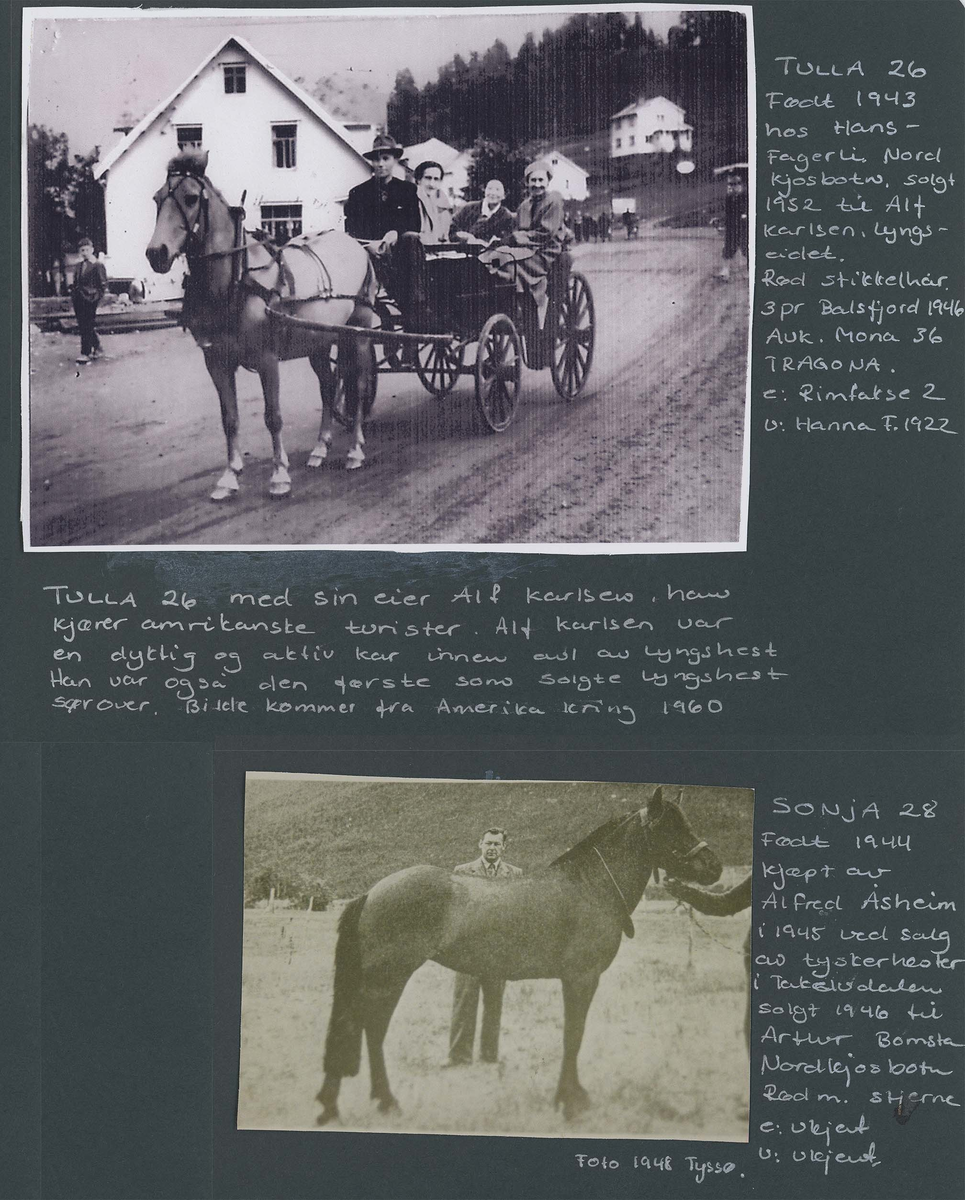 TULLA 26
Født 1943
hos Hans-
Fagerli, Nord
kjosbotn, solgt
1952 til Alf
Karlsen, Lyngs-
eidet.
Rød stikkelhår.
3 pr Balsfjord 1946
Avk. Mona 36
TRAGONA.
e: Rimfakse 2
u: Hanna F. 1922
TULLA 26 med sin eier Alf Karlsen, han
kjører amrikanske turister. Alf Karlsen var
en dyktig og aktiv kar innen avl av Lyngshest
Han var også den første som solgte Lyngshest
sørover. Bilde kommer fra Amerika kring 1960
SONJA 28
Født 1944
kjøpt av
Alfred Åsheim
i 1945 ved salg
av tyskerhester
i Takelvdalen
solgt 1946 til
Artur Bomsta
Nordkjosbotn
Rød m. stjerne
e: ukjent
u: ukjent
Foto 1948 Tyssø.